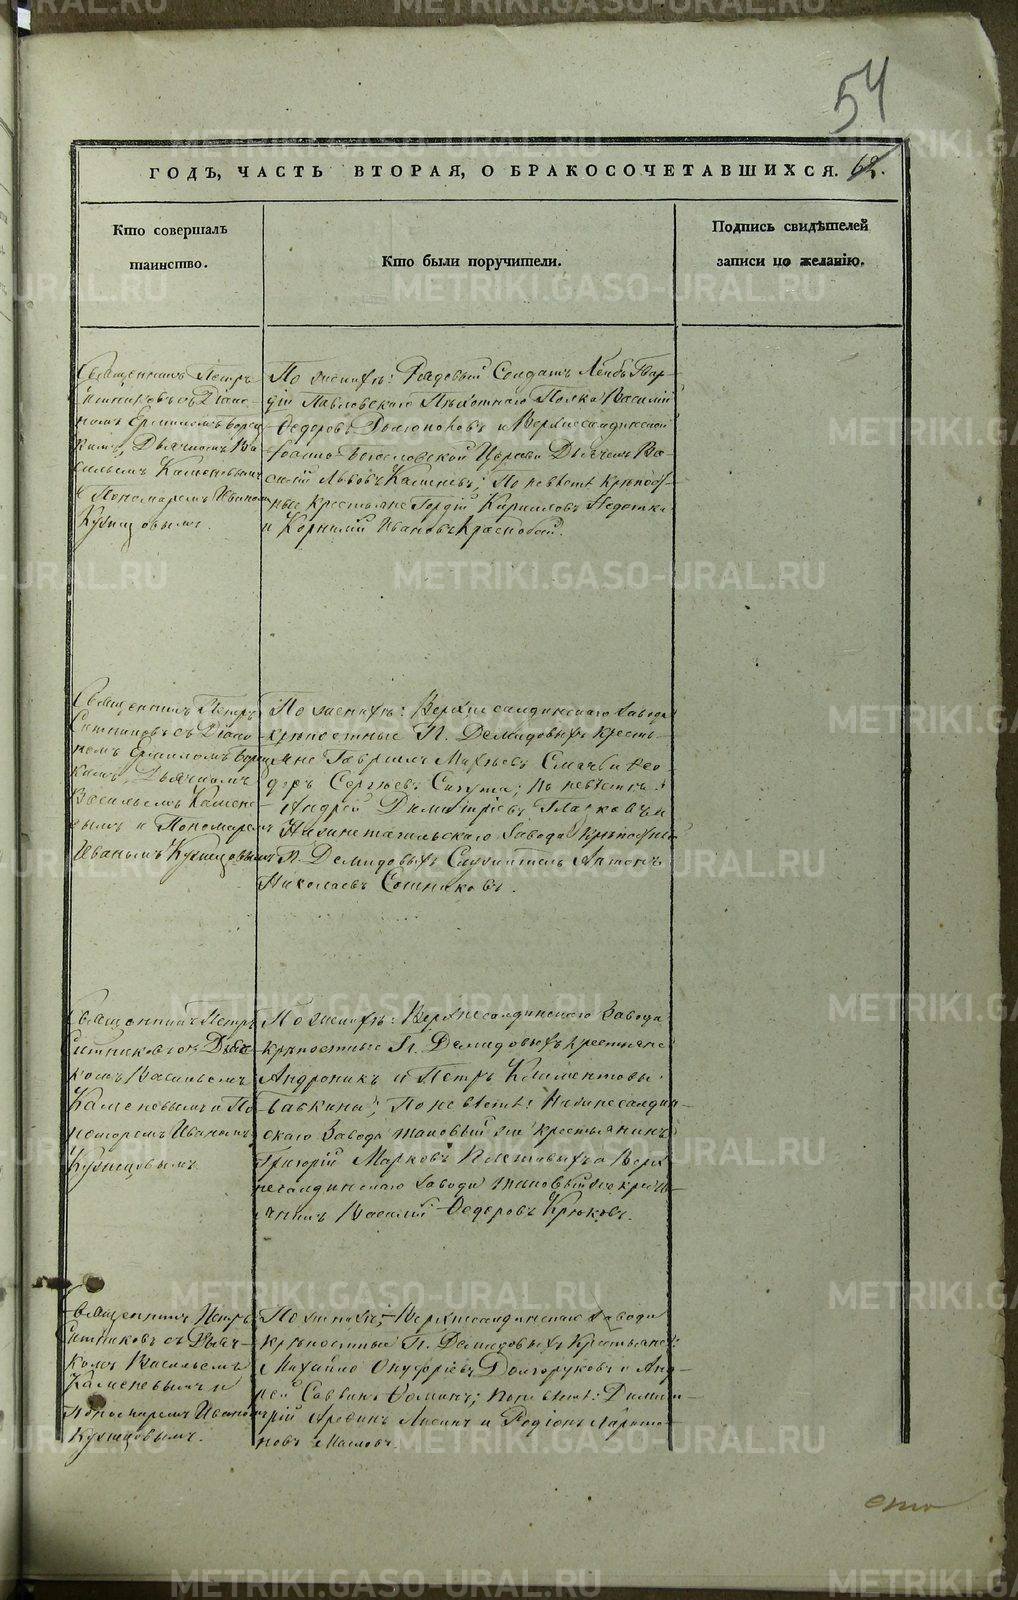 54
ГОДЪ, ЧАСТЬ ВТОРАЯ, О БРАКОСОЧЕТАВШИХСЯ. 62.
Кто совершалъ
таинство.
Кто были поручители.
Подпись свидѣтелей
записи по желанію.
Священникъ Петръ
Ситниковъ съ Діако-
номъ
Дьячкомъ Ва-
сильемъ Каменевымъ
и Пономаремъ Иваномъ
Кузнецовымъ.
По женихѣ: Рядовый Солдатъ Лейбъ Гвар-
діи Павловскаго Пѣхотнаго Полка Василій
Ѳедоровъ и Верхнесалдинской
Іоанно Богословской Церкви Дьячекъ Ва-
силій Львовъ Каменевъ; По невѣстѣ крѣпост-
ные крестьяне Гордій Кириловъ
и Корнилій Ивановъ
Священникъ Петръ
Ситниковъ съ Діако-
номъ
Дьячкомъ
Васильемъ Камене-
вымъ и Пономаремъ
Иваномъ Кузнецовымъ
По женихѣ: Верхнесалдинскаго Завода
крѣпостные Г. Демидовыхъ кресть-
яне Гавріилъ и Ѳео-
доръ Сергѣевъ по невѣстѣ:
Андрей Димитріевъ и
Нижнетагильскаго Завода крѣпостный
Г. Демидовыхъ Служитель Антонъ
Николаевъ Сотниковъ.
Священникъ Петръ
Ситниковъ съ Дьяч-
комъ Васильемъ
Каменевымъ и По-
номаремъ Иваномъ
Кузнецовымъ
По женихѣ: Верхнесалдинскаго Завода
крѣпостные Г. Демидовыхъ крестьяне
Андроникъ и Петръ Климентовы
Бабкины; По невѣстѣ: Нижнесалдин-
скаго Завода таковый же крестьянинъ
Григорій Марковъ а Верх-
несалдинскаго Завода таковый же кресть-
янинъ Василій Ѳедоровъ Крюковъ.
Священникъ Петръ
Ситниковъ съ Дьяч-
комъ Васильемъ
Каменевымъ и
Пономаремъ Иваномъ
Кузнецовымъ.
По женихѣ: Верхнесалдинскаго Завода
крѣпостные Г. Демидовыхъ Крестьяне:
Михайло Онуфріевъ Долгоруковъ и Анд-
рей Саввинъ по невѣстѣ: Димит-
рій и Родіонъ
METRIKI.GASO-URAL.RU